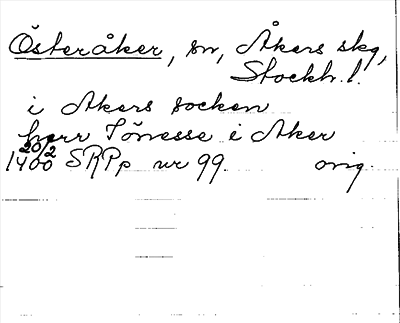 Österåker, sn, Åkers skg,
Stockh. l.
i Akers socken
herr Tönesse i Aker
20/2
1400 SRPp nr 99. orig.